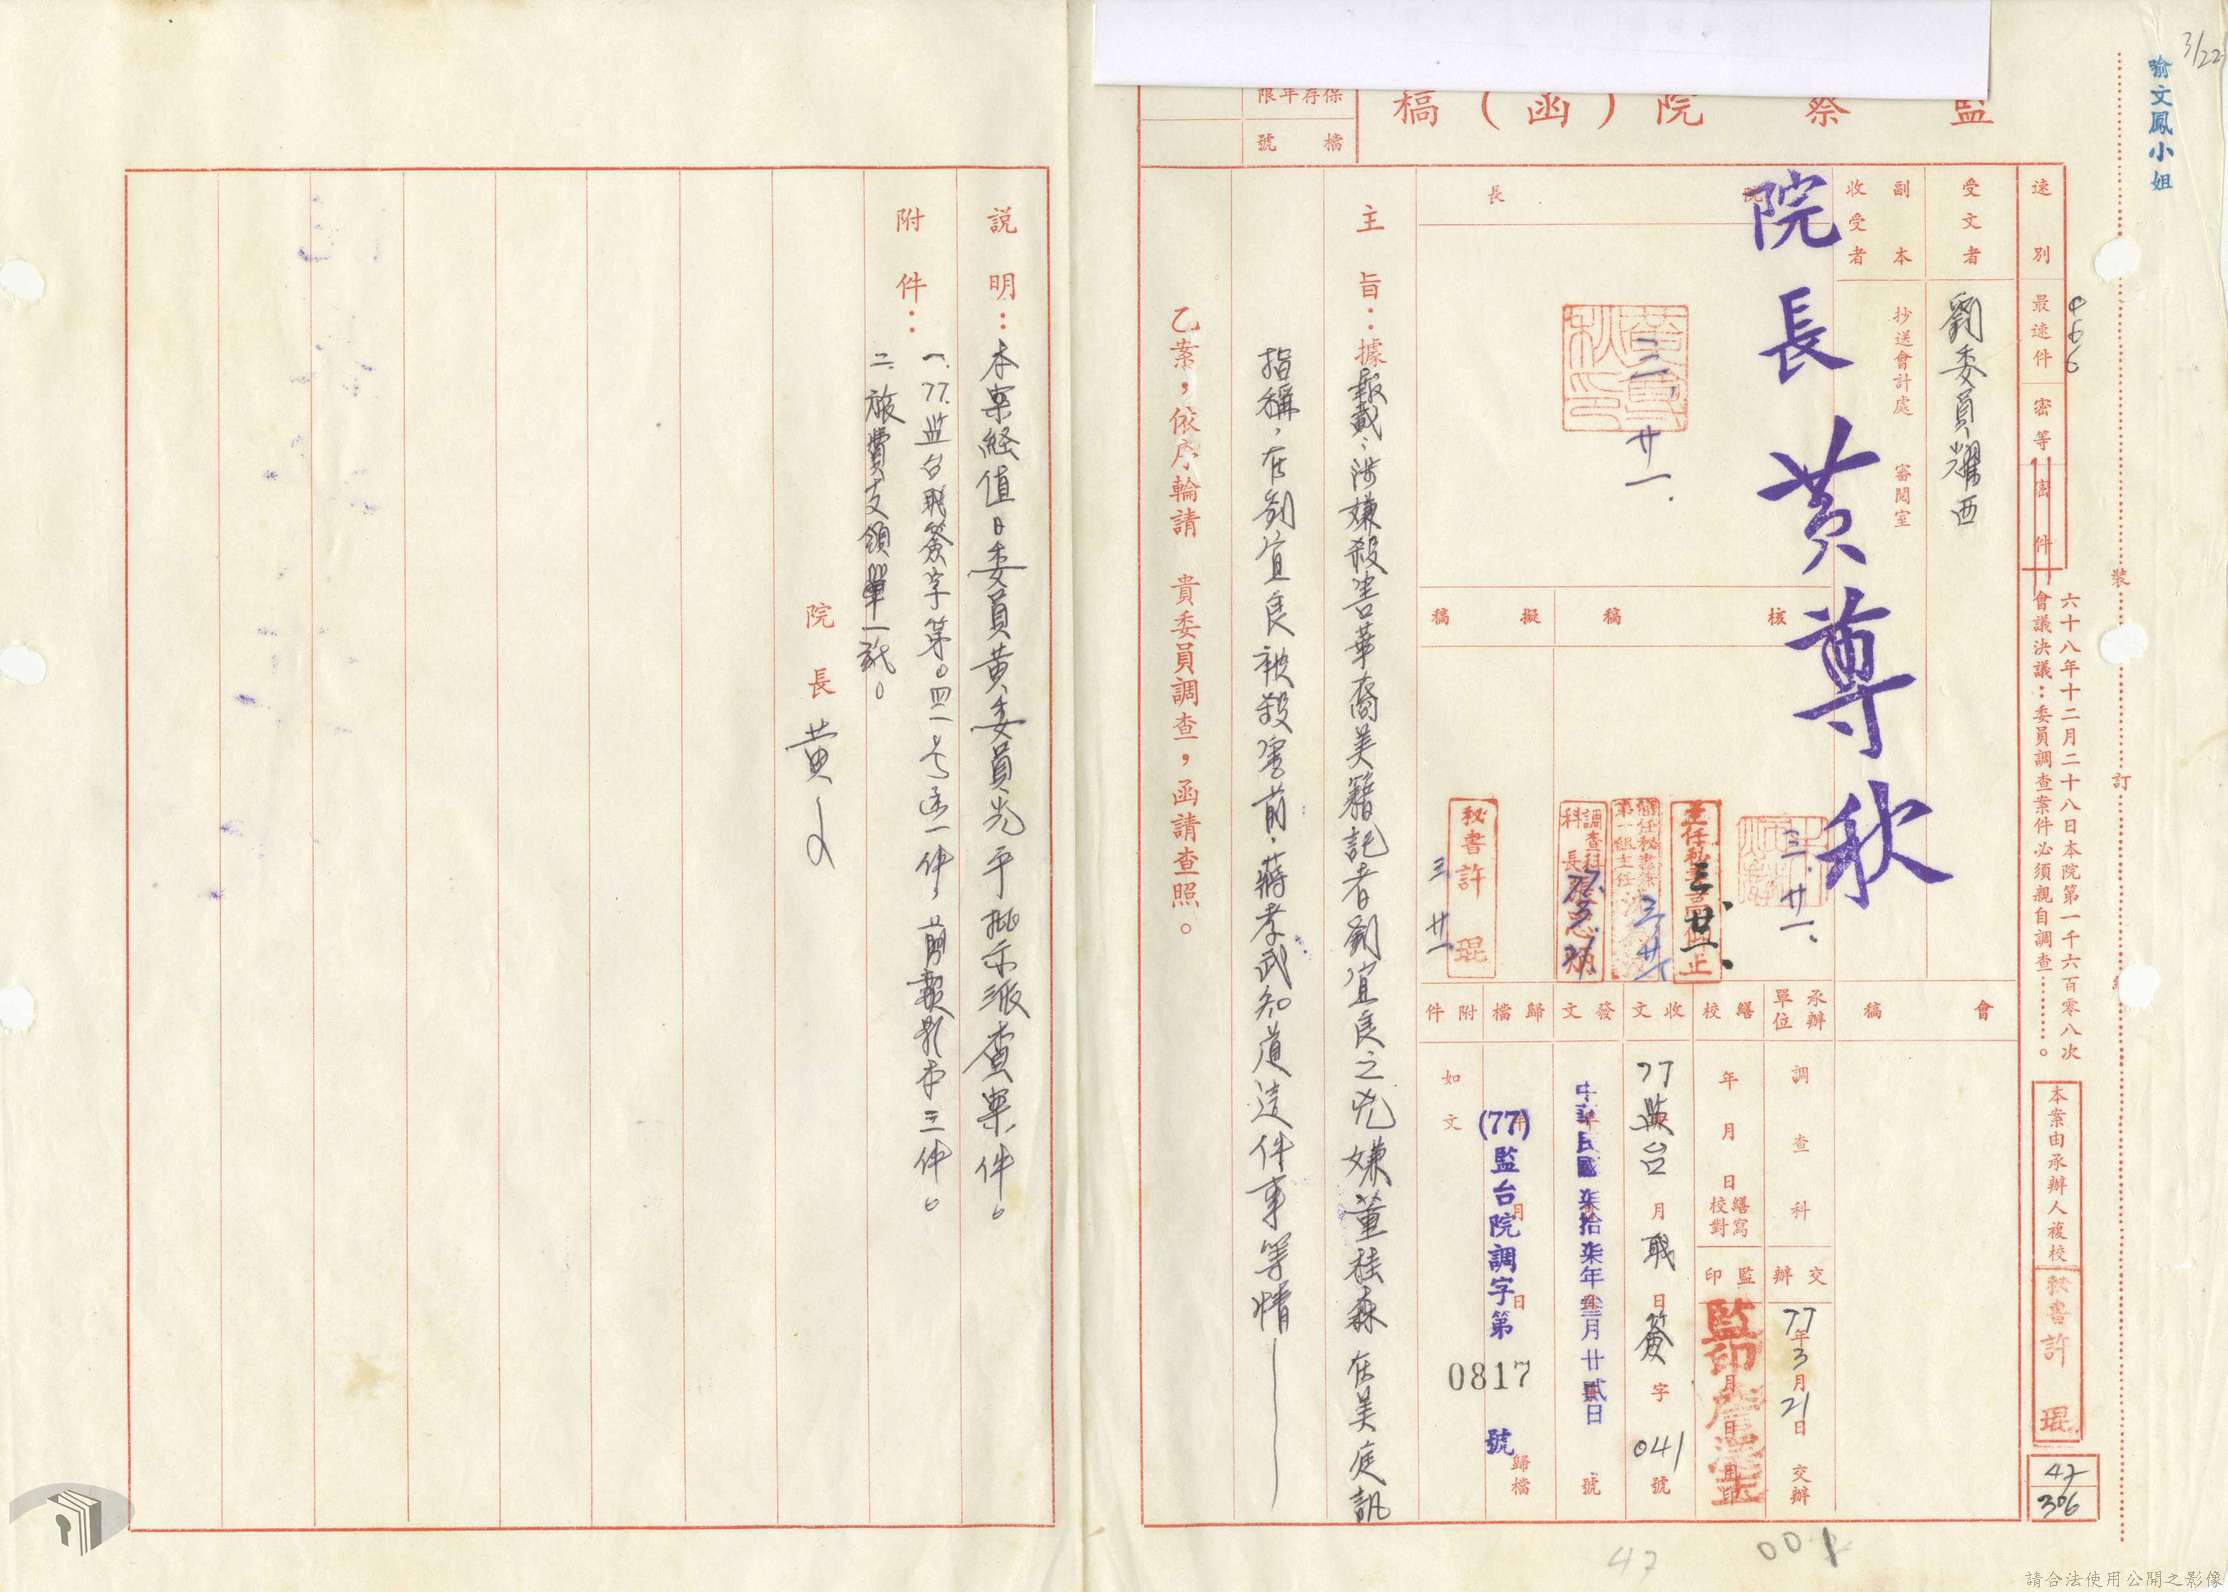 3/22
喻文鳳小姐
監察院(函)稿
保存年限
檔號
裝
訂
六十八年十二月二十八日本院第一千六百零八次
會議決議：委員調查案件必須親自調查……。
本案由承辦人複校
秘書許琨
47
306
速別
最速件
密等
密件
受文者
劉委員耀西
副本收受者
抄送會計處 審閱室
院長
院長黃尊秋
黃尊秋印
三、廿一.
核稿
擬稿
三、廿一、
秘書許琨
三、廿一
會稿
承辦單位
調查科
交辦
77年3月21日交辦
繕校
年月日
繕寫
校對
監印
收文
77監台月職日簽字041號
發文
中華民國柒拾柒年叁月廿貳日
號
歸檔
(77)監台院調字第0817號
年月日歸檔
附件
如文
主旨：據報載、涉嫌殺害華裔美籍記者劉宜良之兇嫌董桂森在美庭訊
指稱，在劉宜良被殺害前，蔣孝武知道這件事等情
乙案，依序輪請 貴委員調查，函請查照。
說明：本案經值日委員黃委員光平批示派查案件。
附件：一、77.監台職簽字第○四一号函一件，剪報影本三件。
二、旅費支領單一張。
院長 黃
47
001
請合法使用公開之影像